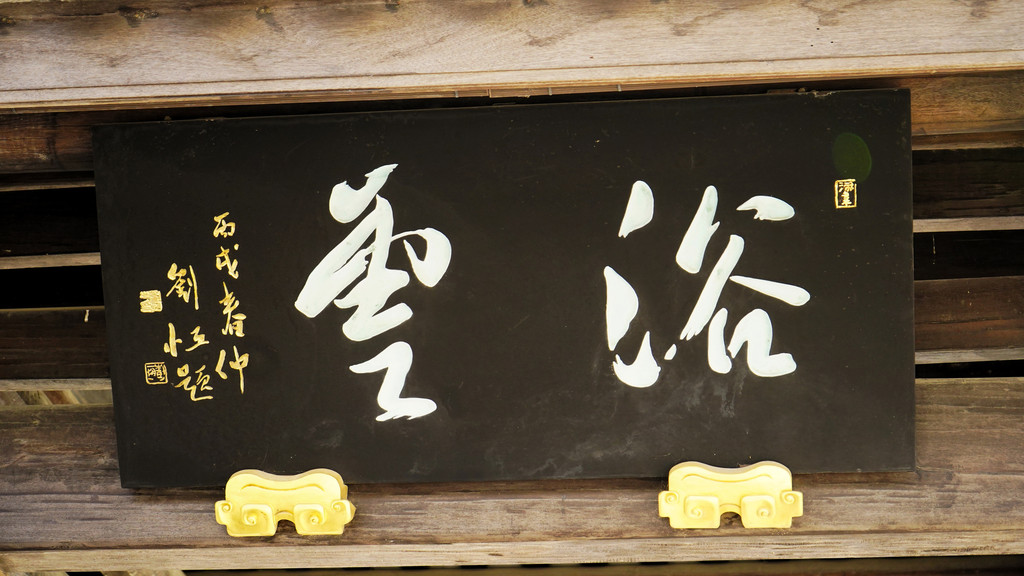 浴雲
丙戌春仲
劉恒題